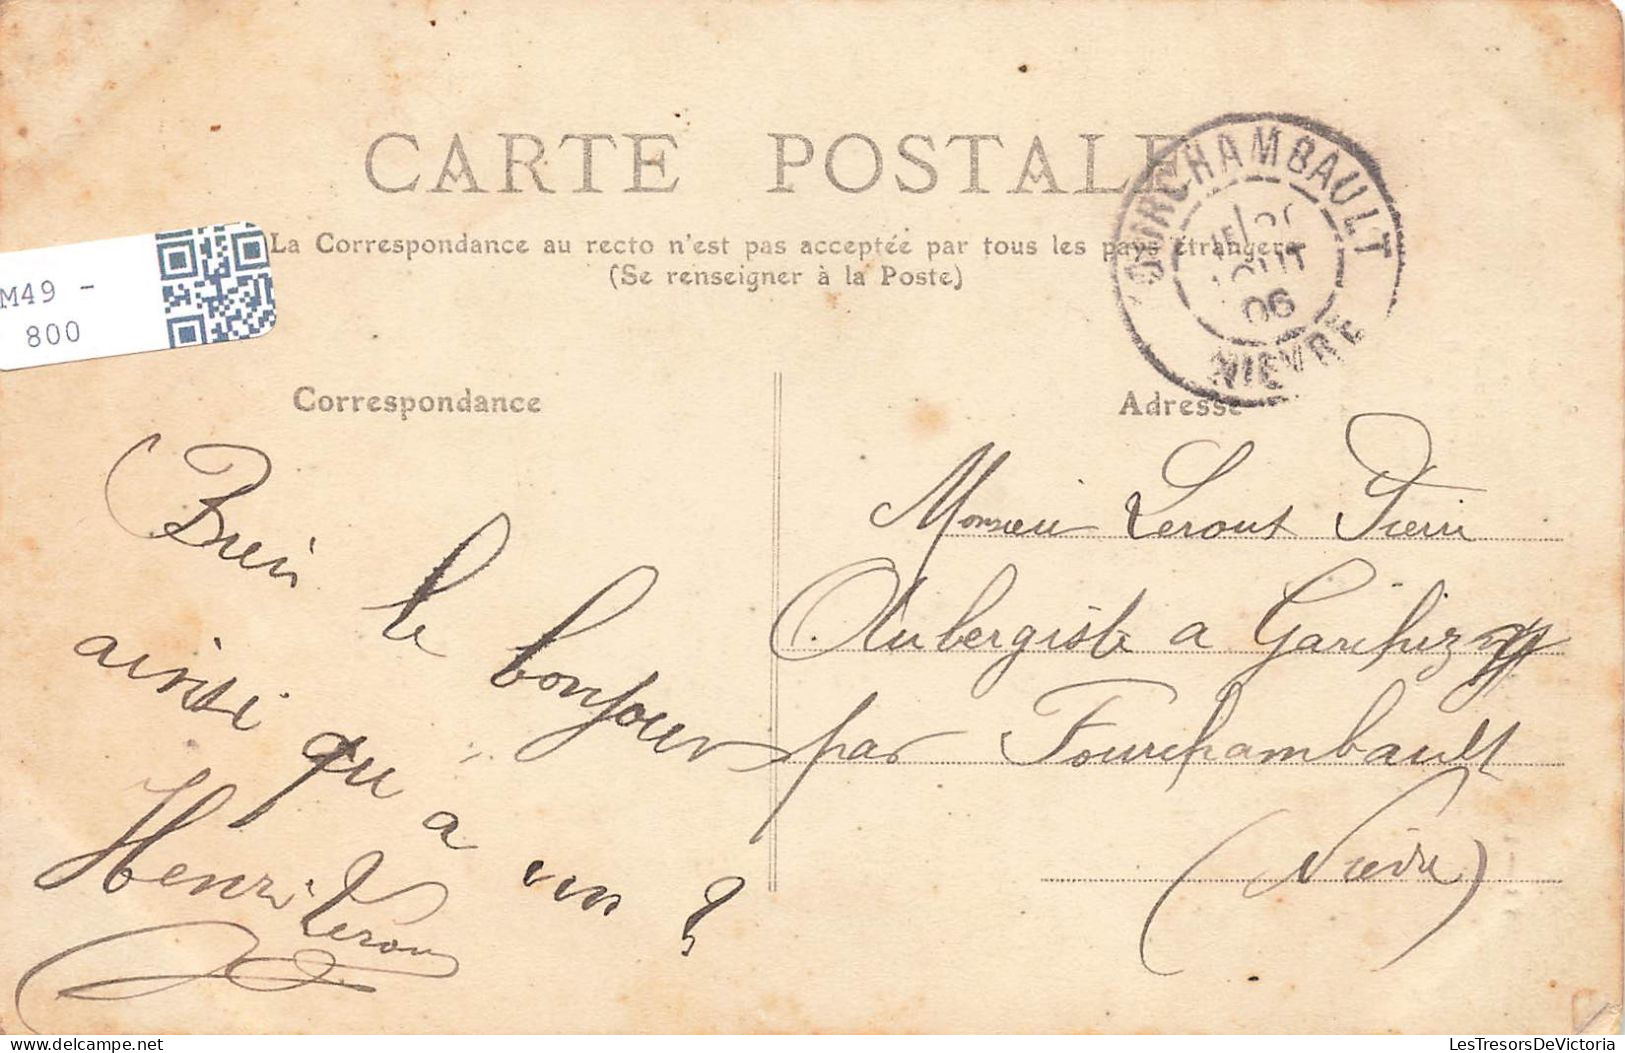 CARTE POSTALE
La Correspondance au recto n'est pas acceptée par tous les pays étrangers
(Se renseigner à la Poste)
M49 -
800
FOURCHAMBAULT
AOUT
06
NIEVRE
Correspondance
Bien
le bonjour
ainsi qu a
Henri Lerou
Adresse
Monsieur Leroux Pierre
Aubergiste a Garchizy
par Fourchambault
(Nièvre)
LesTresorsDeVictoria
delcampe.net